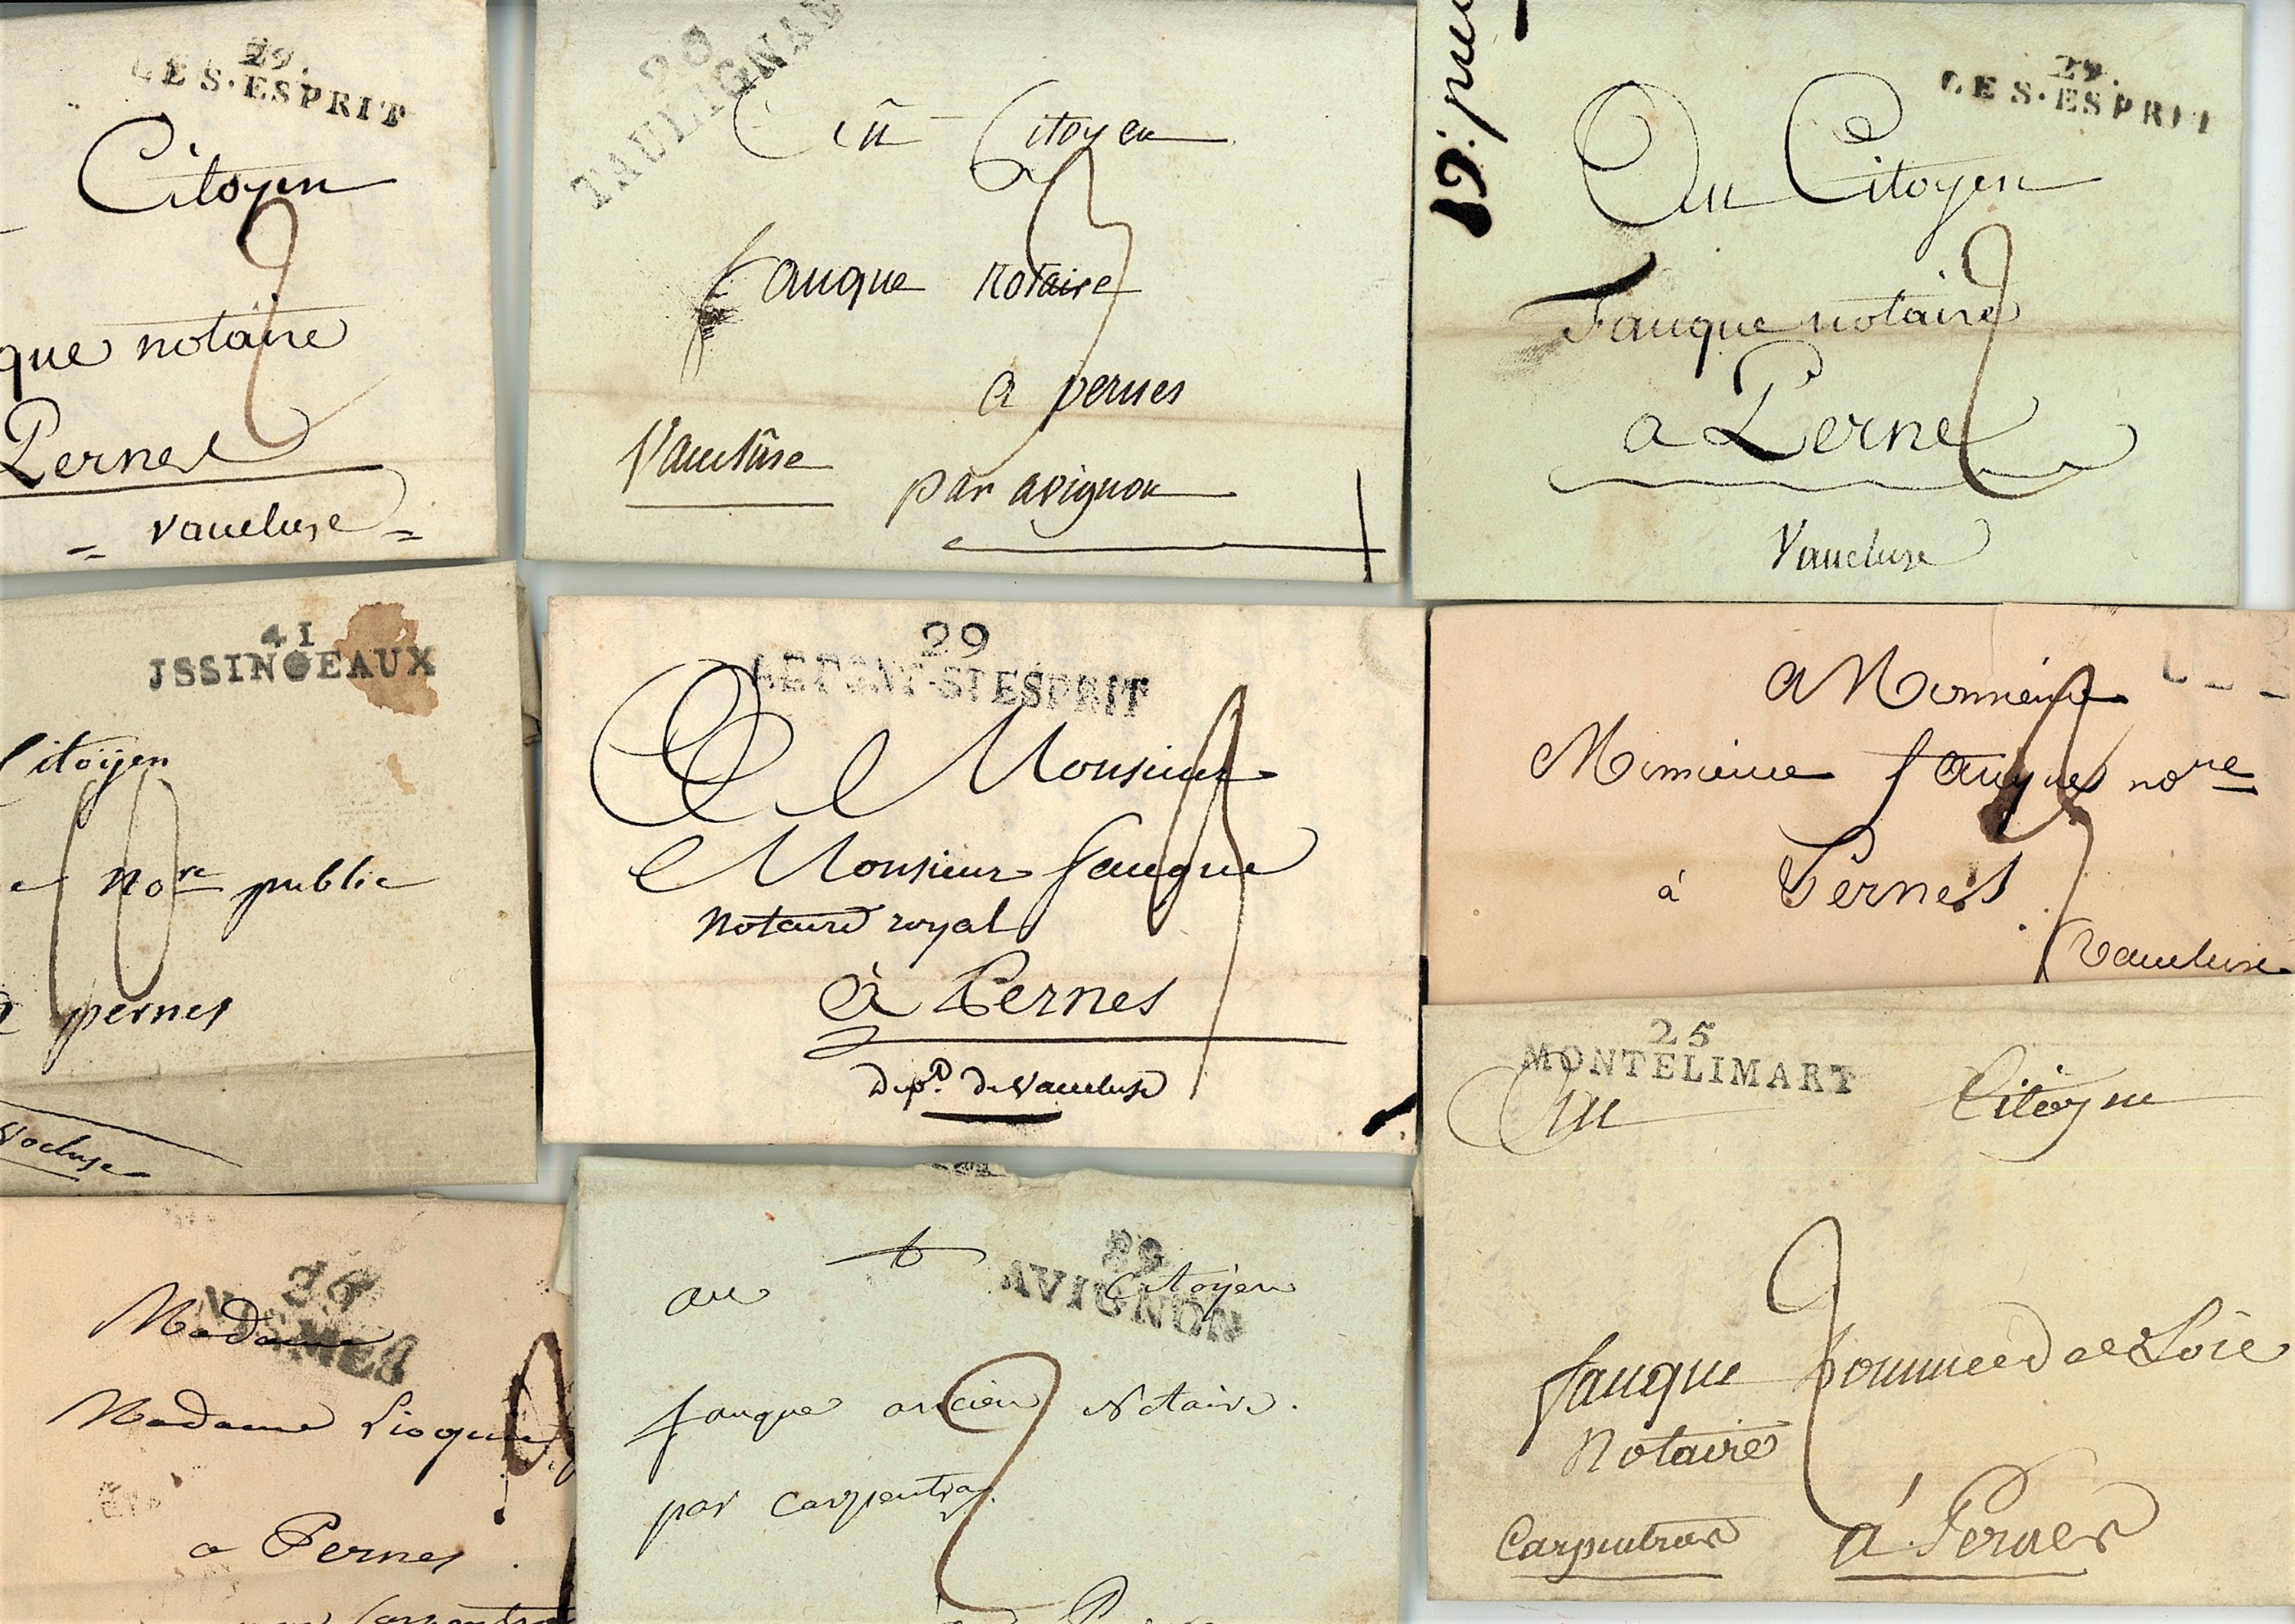 29.
LE S·ESPRIT
Citoyen
2
que notaire
Pernes
Vaucluse
28
TAULIGNAN
Au Citoyen
3
fauque notaire
a pernes
Vaucluse
par avignon
19.
29.
LE S·ESPRIT
Au Citoyen
2
Fauque notaire
a Pernes
Vaucluse
41
JSSINGEAUX
Citoyen
10
nore public
a pernes
Vocluse
29
LE PONT-ST ESPRIT
A Monsieur
Monsieur fauque
Notaire royal
à Pernes
Dept. De Vaucluse
A Monsieur
Monsieur fauque nore
à Pernes
Vaucluse
25
MONTELIMART
Au Citoyen
2
fauque pommée de Loie
Notaire
Carpentras à Pernes
NISMES
Madame
Madame Lioque
a Pernes
par Carpentras
89
AVIGNON
au Citoyen
2
fauque ancien Notaire.
par Carpentras